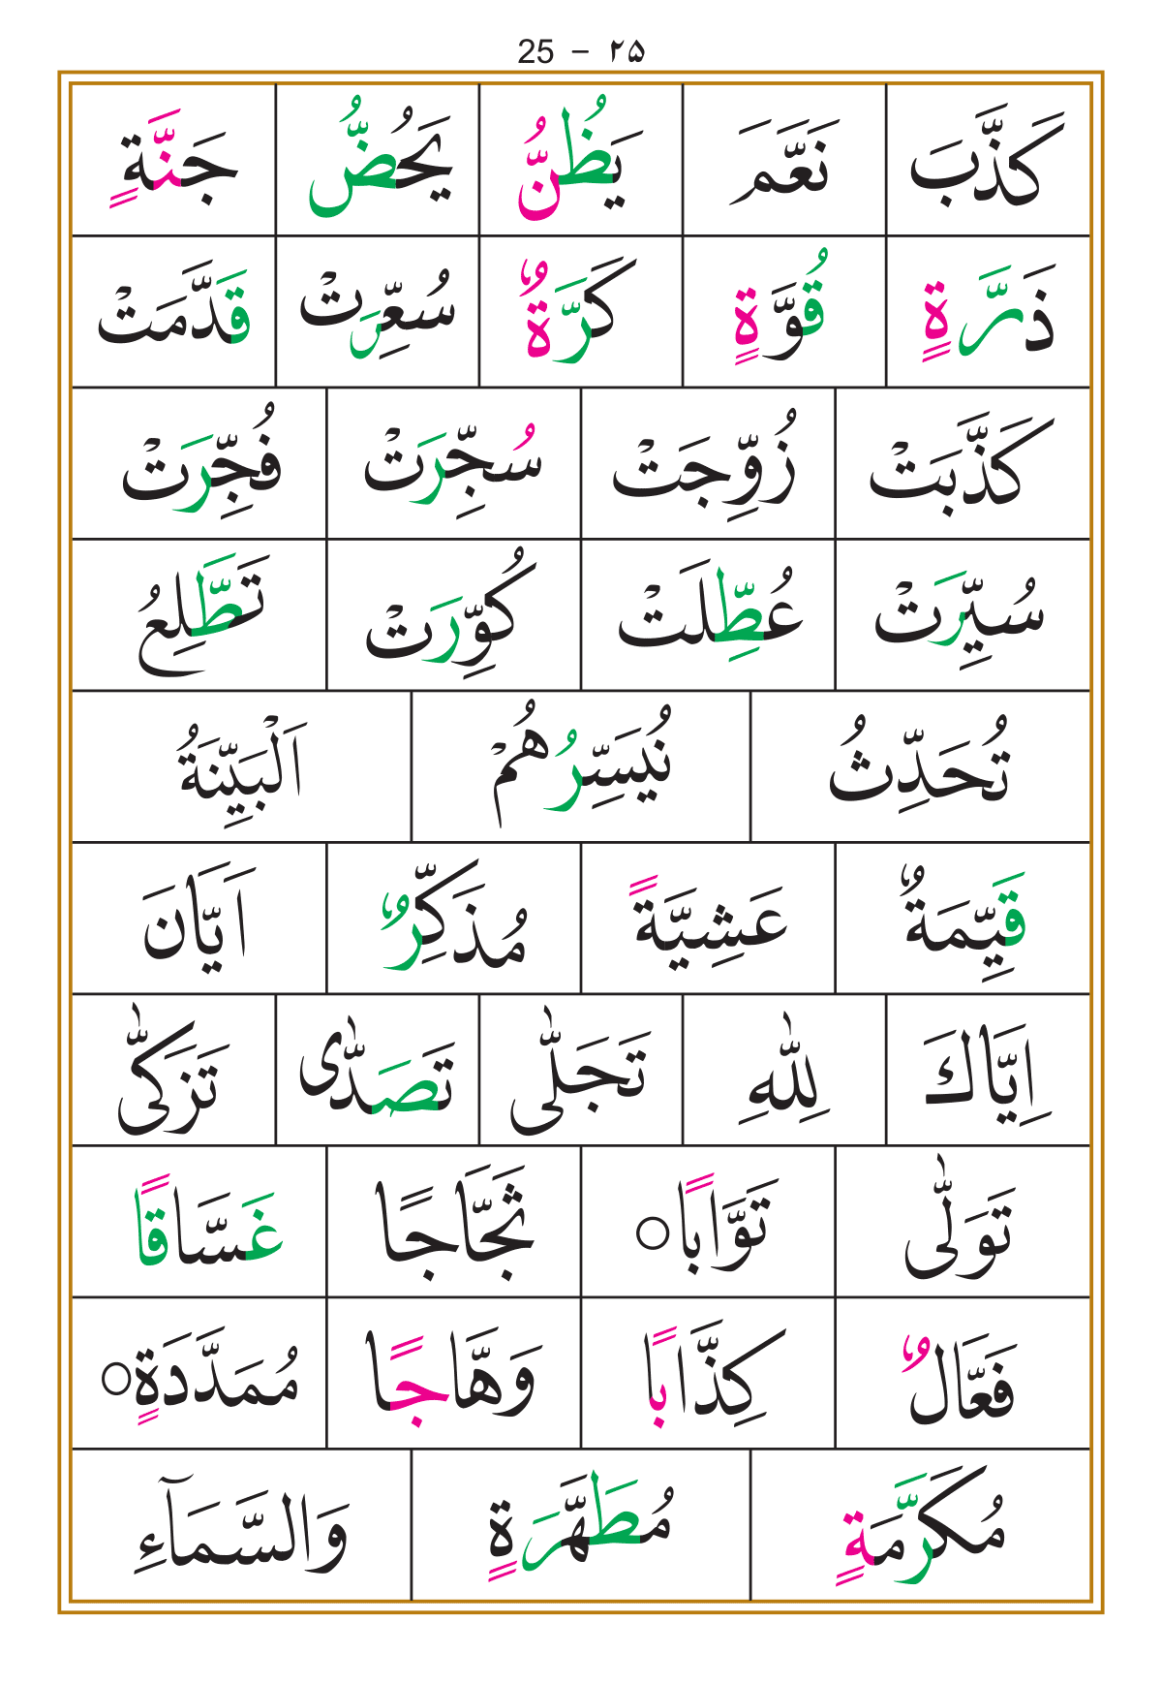 25 – ۲۵
كَذَّبَ نَعَّمَ يَظُنُّ يَحُضُّ جَنَّةٍ
ذَرَّةٍ قُوَّةٍ كَرَّةٌ سُعِّرَتْ قَدَّمَتْ
كَذَّبَتْ زُوِّجَتْ سُجِّرَتْ فُجِّرَتْ
سُيِّرَتْ عُطِّلَتْ كُوِّرَتْ تَطَّلِعُ
تُحَدِّثُ نُيَسِّرُهُمْ اَلْبَيِّنَةُ
قَيِّمَةٌ عَشِيَّةً مُذَكِّرٌ اَيَّانَ
اِيَّاكَ لِلّٰهِ تَجَلّٰى تَصَدّٰى تَزَكّٰى
تَوَلّٰى تَوَّابًا○ ثَجَّاجًا غَسَّاقًا
فَعَّالٌ كِذَّابًا وَهَّاجًا مُمَدَّدَةٍ○
مُكَرَّمَةٍ مُطَهَّرَةٍ وَالسَّمَآءِ